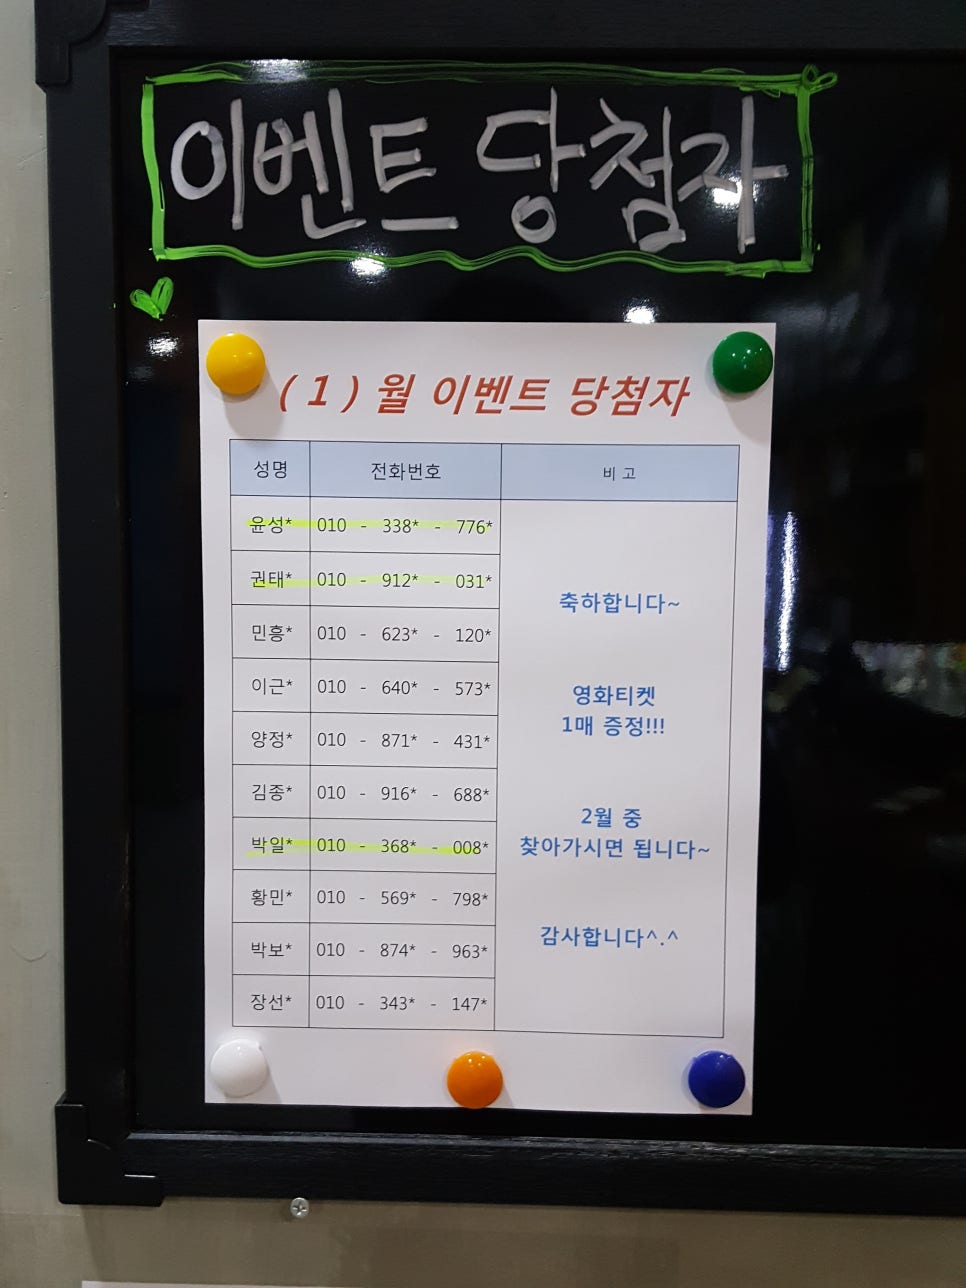 이벤트 당첨자
(1)월 이벤트 당첨자
성명 전화번호 비고
윤성* 010 - 338* - 776*
권태* 010 - 912* - 031*
민흥* 010 - 623* - 120*
이근* 010 - 640* - 573*
양정* 010 - 871* - 431*
김종* 010 - 916* - 688*
박일* 010 - 368* - 008*
황민* 010 - 569* - 798*
박보* 010 - 874* - 963*
장선* 010 - 343* - 147*
축하합니다~
영화티켓
1매 증정!!!
2월 중
찾아가시면 됩니다~
감사합니다^.^